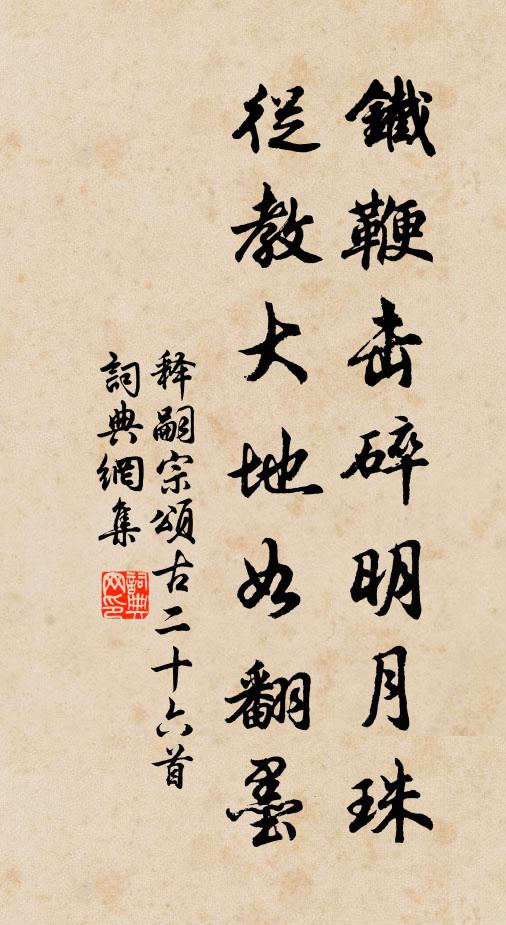 鐵鞭击碎明月珠
從教大地如翻墨
释嗣宗頌古二十六首
詞典網集
詞典网印